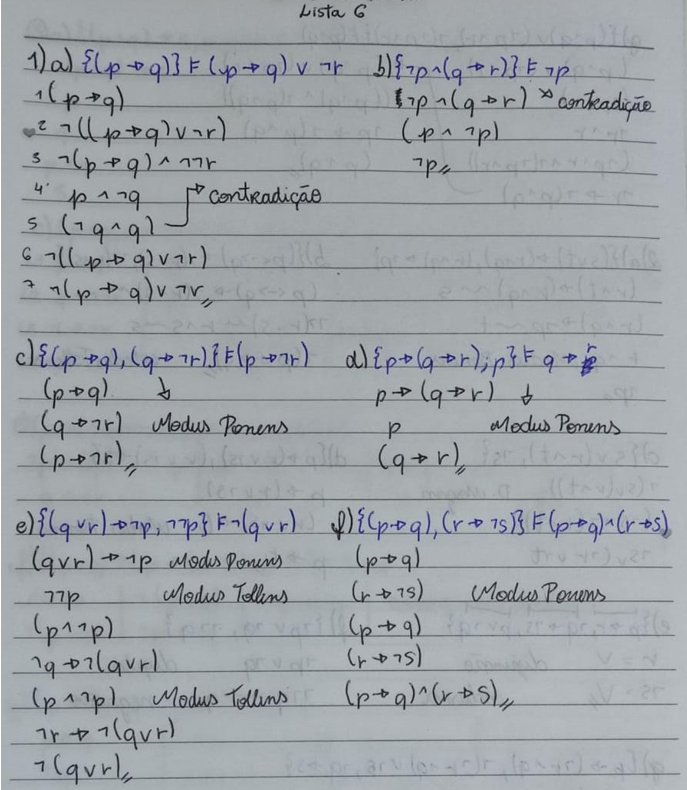 Lista 6
1) a) {(p→q)} ⊨ (p→q) ∨ ¬r
1 (p→q)
2 ¬((p→q)∨¬r)
3 ¬(p→q) ∧ ¬¬r
4 p ∧ ¬q → contradição
5 (¬q ∧ q)
6 ¬((p→q)∨¬r)
7 ¬(p→q)∨¬r//
b) {¬p∧(q→r)} ⊨ ¬p
¬p∧(q→r) → contradição
(p ∧ ¬p)
¬p//
c) {(p→q), (q→¬r)} ⊨ (p→¬r)
(p→q) ↓
(q→¬r) Modus Ponens
(p→¬r)//
d) {p→(q→r); p} ⊨ q→r
p→(q→r) ↓
p Modus Ponens
(q→r)//
e) {(q∨r)→¬p, ¬¬p} ⊨ ¬(q∨r)
(q∨r)→¬p Modus Ponens
¬¬p Modus Tollens
(p∧¬p)
¬q→¬(q∨r)
(p∧¬p) Modus Tollens
¬r→¬(q∨r)
¬(q∨r)//
f) {(p→q), (r→¬s)} ⊨ (p→q)∧(r→s)
(p→q)
(r→¬s) Modus Ponens
(p→q)
(r→¬s)
(p→q)∧(r→s)//